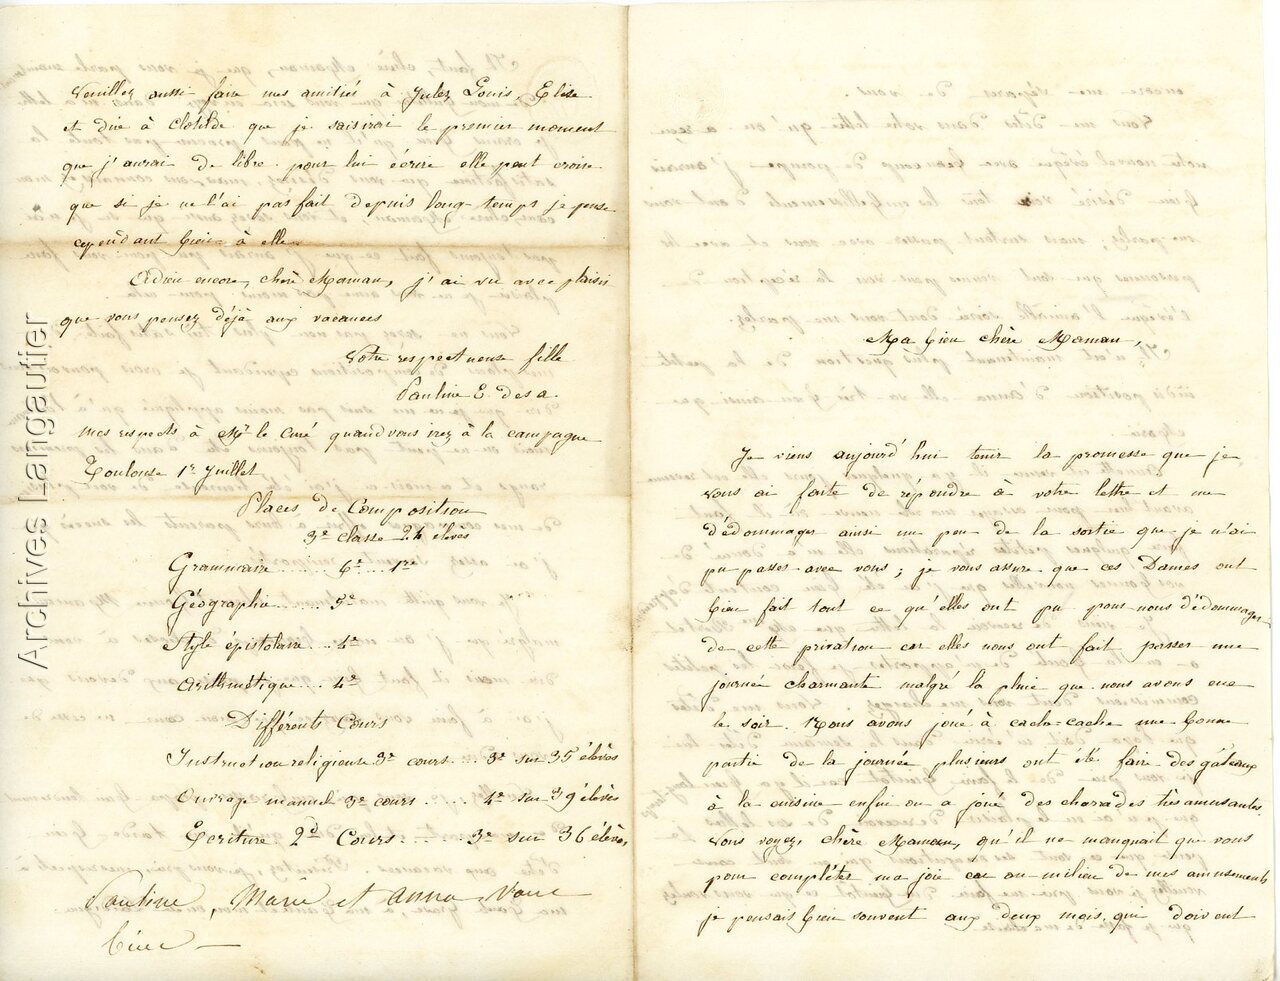 Veuillez aussi faire mes amitiés à Jules, Louis, Elise
et dire à Clotilde que je saisirai le premier moment
que j'aurai de libre pour lui écrire elle peut croire
que si je ne l'ai pas fait depuis long-temps je pense
cependant bien à elle.
Adieu encore, chère Maman, j'ai vu avec plaisir
que vous pensez déjà aux vacances
Votre respectueuse fille
Pauline E. des a.
mes respects à Mr le Curé quand vous irez à la campagne
Toulouse 1r Juillet
Places de Composition
3e classe 24 élèves
Grammaire ...... 6e ... 1re
Géographie ...... 3e
Style épistolaire ... 4e
Arithmétique ... 4e
Différents Cours
Instruction religieuse 3e cours .... 3e sur 35 élèves
Ouvrage manuel 3e cours ..... 4e sur 39 élèves
Ecriture 2d Cours ...... 3e sur 36 élèves
Pauline, Marie et Anna vont
bien —
Ma bien chère Maman,
Je viens aujourd'hui tenir la promesse que je
vous ai faite de répondre à votre lettre et me
dédommager ainsi un peu de la sortie que je n'ai
pu passer avec vous ; je vous assure que ces Dames ont
bien fait tout ce qu'elles ont pu pour nous dédommager
de cette privation car elles nous ont fait passer une
journée charmante malgré la pluie que nous avons eue
le soir. Nous avons joué à cache-cache une bonne
partie de la journée plusieurs ont été faire des gâteaux
à la cuisine enfin on a joué des charades très amusantes.
Vous voyez, chère Maman, qu'il ne manquait que vous
pour compléter ma joie car au milieu de mes amusements
je pensais bien souvent aux deux mois qui doivent
Archives Langautier